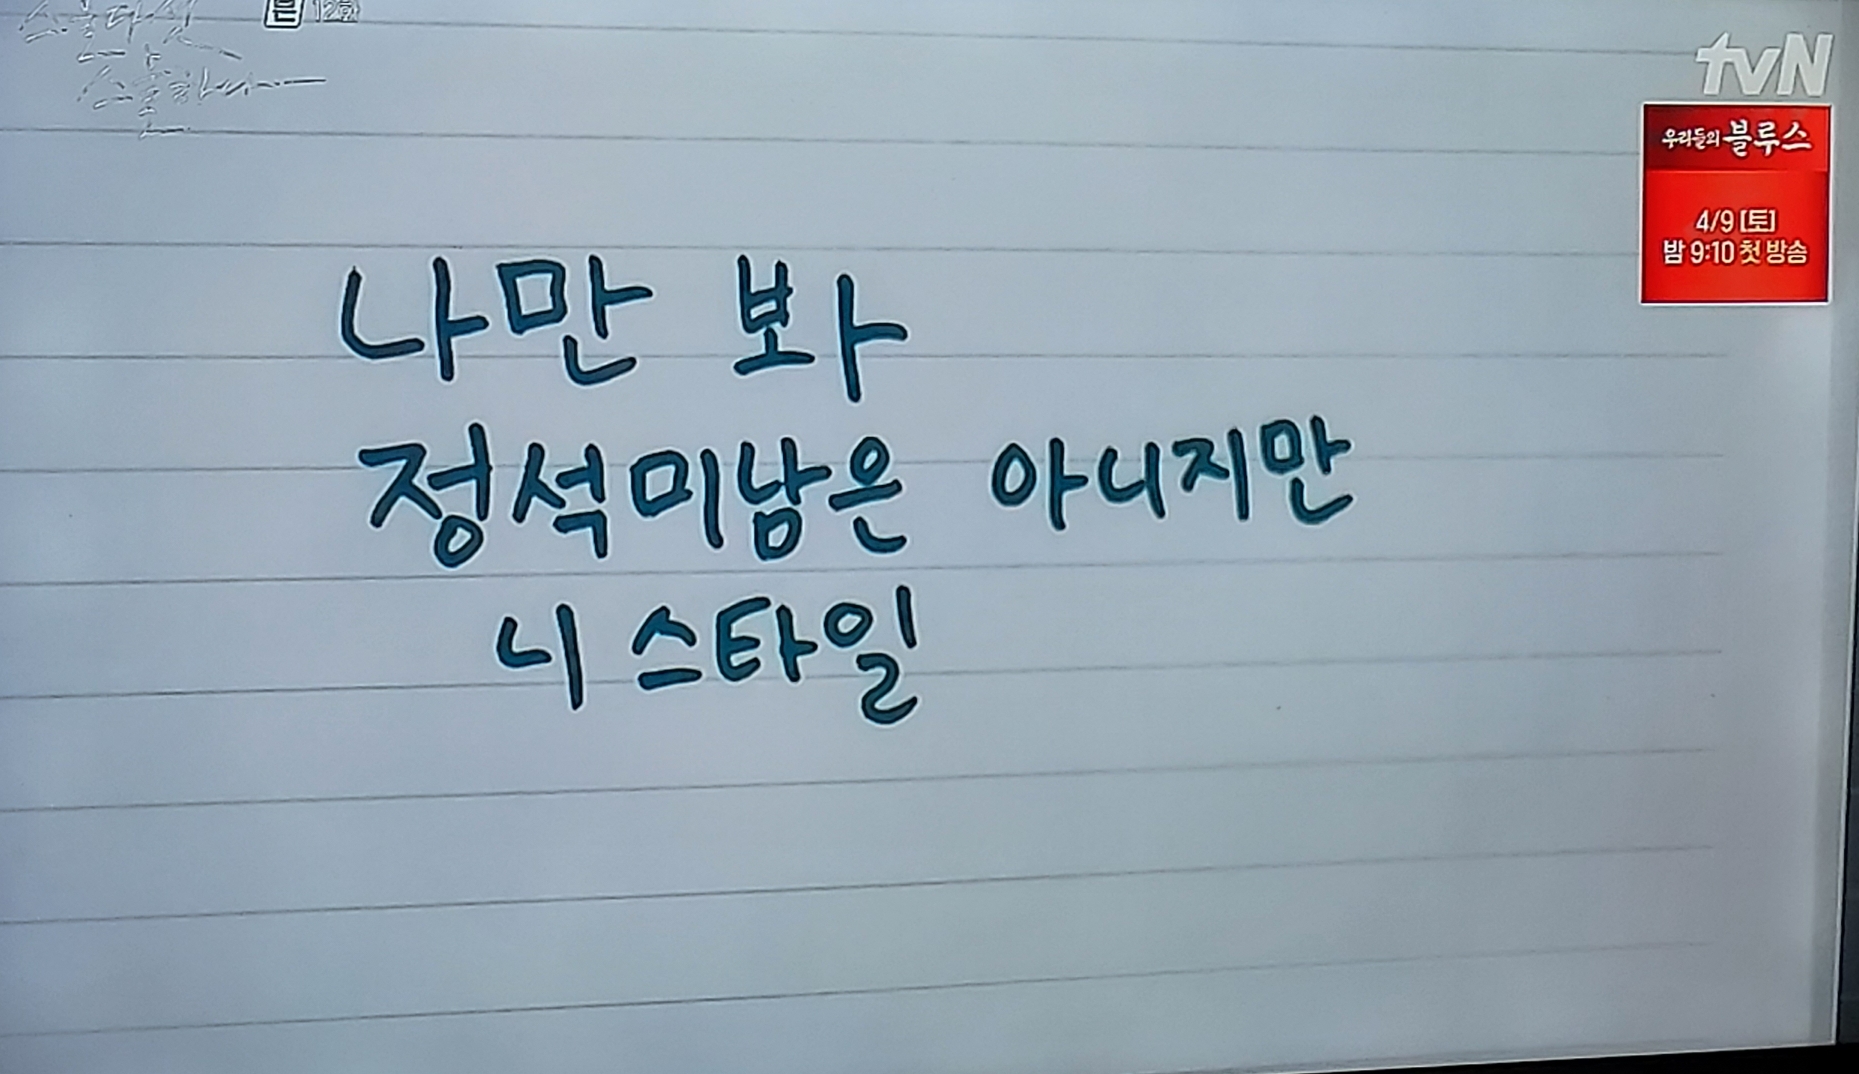 스물다섯
스물하나
본 12화
tvN
우리들의 블루스
4/9 [토]
밤 9:10 첫 방송
나만 봐
정석미남은 아니지만
니 스타일